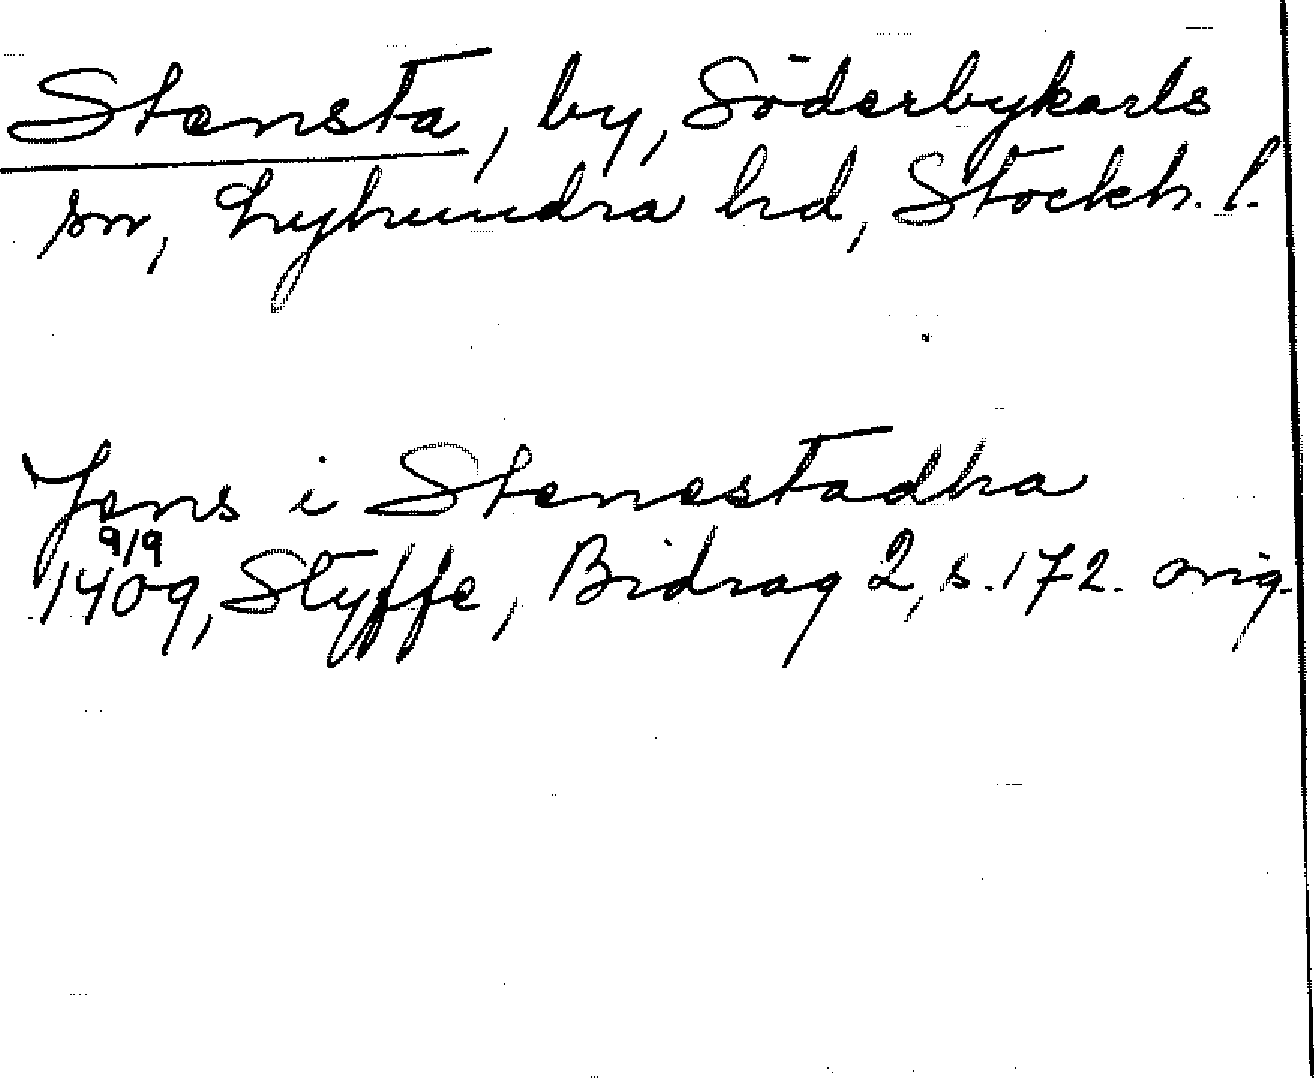 Stensta, by, Söderbykarls
sn, Lyhundra hd, Stockh. l.
Jens i Stenestadha
9/9
1409, Styffe, Bidrag 2, s. 172. orig.